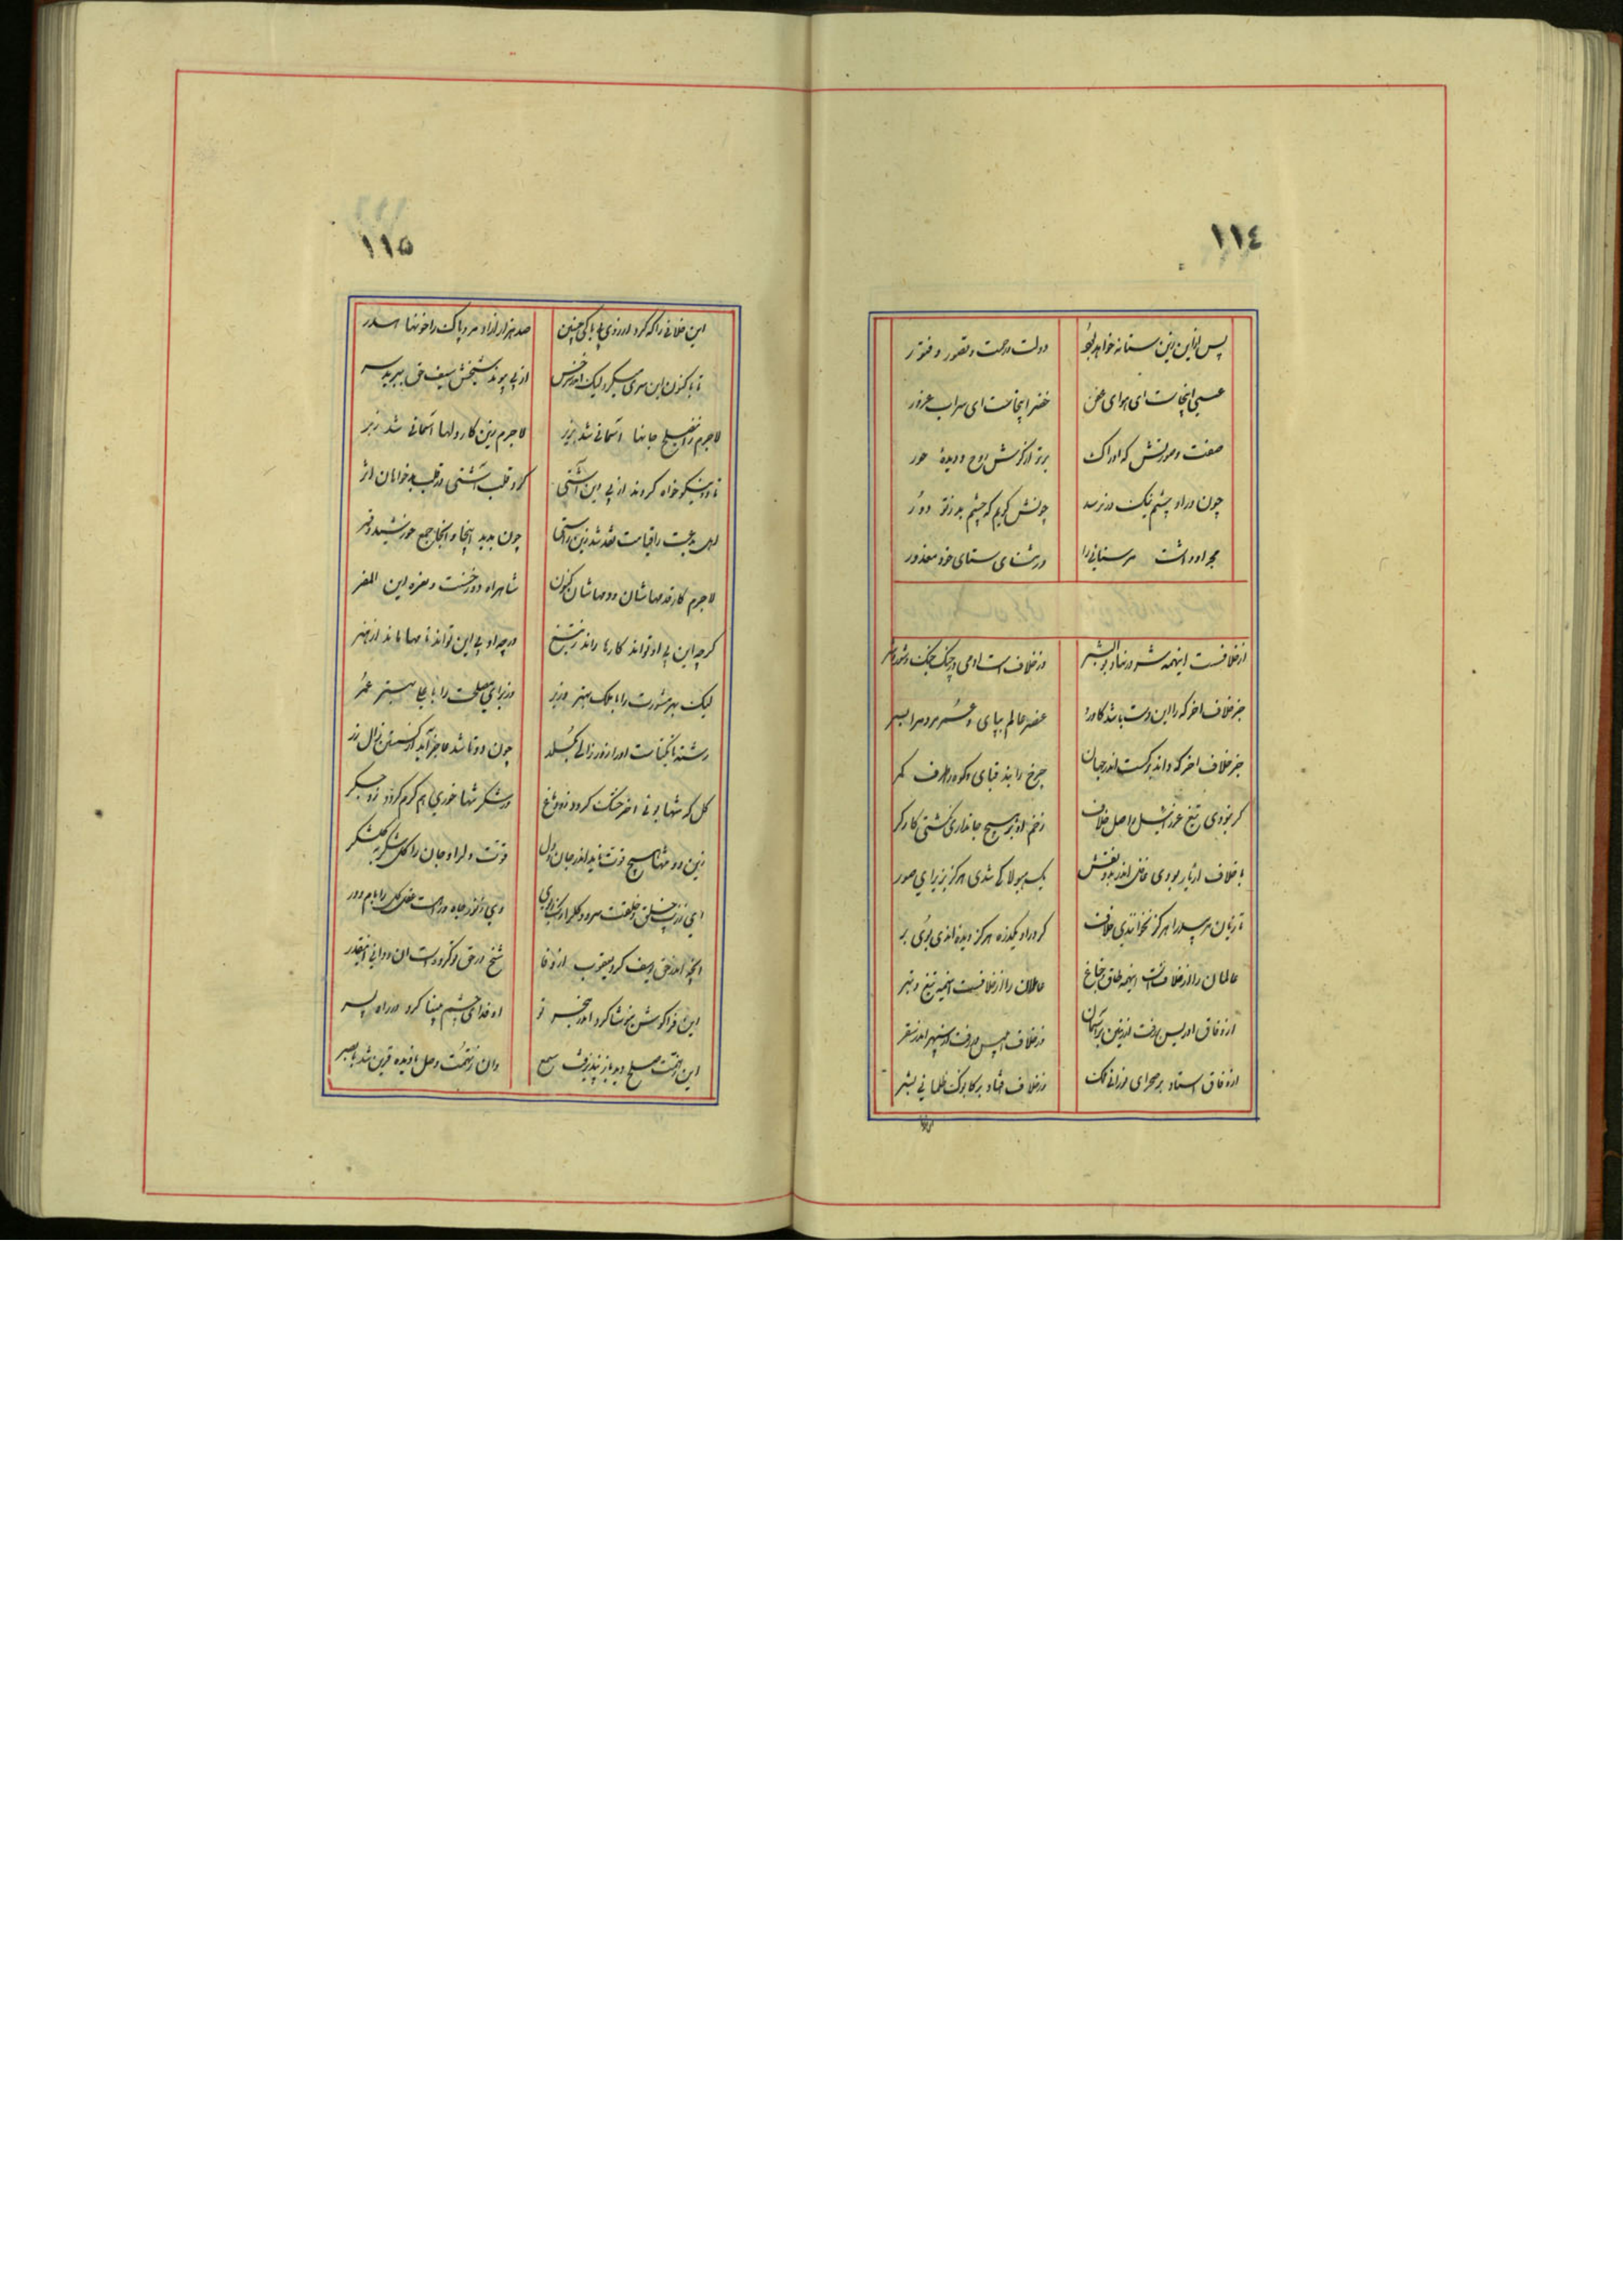 ١١٤
پس ازین زین ستانه خواهد بود دولت و رحمت و قصور و فتور
عیسی اینجاست ای هوای عفن خضر اینجاست ای سراب غرور
صفت و صورتش که ادراک برتر از گوش روح و دیدهٔ حور
چون در او چشم نیک در نرسد چونش گویم که چشم بد ز تو دور
مجد او داشت مر سنائی را در ثنای سنای خود معذور
از خلافست اینهمه شر در نهاد بوالبشر وز خلاف است آدمی در چنگ جنگ و شور و شر
جز خلاف آخر که را این دست باشد کاورد عنصر عالم بپای و عمر مردم را بسر
جز خلاف آخر که داند برگسست اندر جهان چرخ را بند قبای و کوه را طرف کمر
گر نبودی تیغ عزرائیل را اصل خلاف زخم او بر هیچ جانداری نگشتی کارگر
با خلاف ار یار بودی خاص اندر بدو نقش یک هیولا کی شدی هرگز پذیرای صور
تا زبان مر پسر را هرگز نخواندی خلاف گرد راد یکدره هرگز دیده اندی بوی بر
عالمان را از خلافست اینهمه طاق و جناغ عاملان را از خلافست اینهمه تیغ و تبر
از وفاق ادریس بر رفت از زمین بر آسمان وز خلاف ابلیس در رفت از سپهر اندر سقر
از وفاق استاد بر صحرای نورانی ملک وز خلاف افتاد بر کابوک ظلمانی بشر
١١٥
این خلافی را که کرد از روی پاکی چنین صد هزار آزاد مرد پاک را خونها هدر
تا کنون این سری میکرد لیک اندر سرخس از پی پیوند شیخش سیف حق ببرید سر
لاجرم زان صلح جانها آسمانی شد بزیر لاجرم زین کار دلها آسمانی شد زبر
تا دو نیکوخواه کردند از پی دین آشتی کرد قلب آشتی در قلب بدخواهان اثر
اهل بدعت را قیامت نقد شد زین راستی چون بدید اینجا و آنجا جمع خورشید و قمر
لاجرم کار قدمهاشان و دمهاشان کنون شاهراه دوزخست و نعره این المفر
گرچه این بی او تواند کارها راند ز تیغ ورچه او بی این تواند تا مهما ماند از هنر
لیک بهر مشورت را با ملک بهتر وزیر وز برای مصلحت را با علی بهتر عمر
رشته تا یکتاست او را زور زالی بگسلد چون دو تا شد عاجز آید از گسستن زال زر
گل گر تنها بوئی آخر خشک گردد زو دماغ ور شکر تنها خوری هم گرم گردد زو جگر
زین دو تنها هیچ قوت ناید اندر جان و دل قوت دل را و جان را گل شکر به گلشکر
ای ز زیب خلق و خلقت سرو و گل را رنگ و بوی وی ز نور جاه و رایت عقل کل را بام و در
آنچه اندر حق یوسف کرد یعقوب از وفا شیخ در حق تو کرده است آن و دانی اینقدر
این فرا گوشش نیوشا کرد اندر هجر تو او فدای چشم بینا کرد در راه پسر
این ز همت صلح دید باز پذیرفت سمع وان ز تهمت وصل نادیده قرین شد با بصر